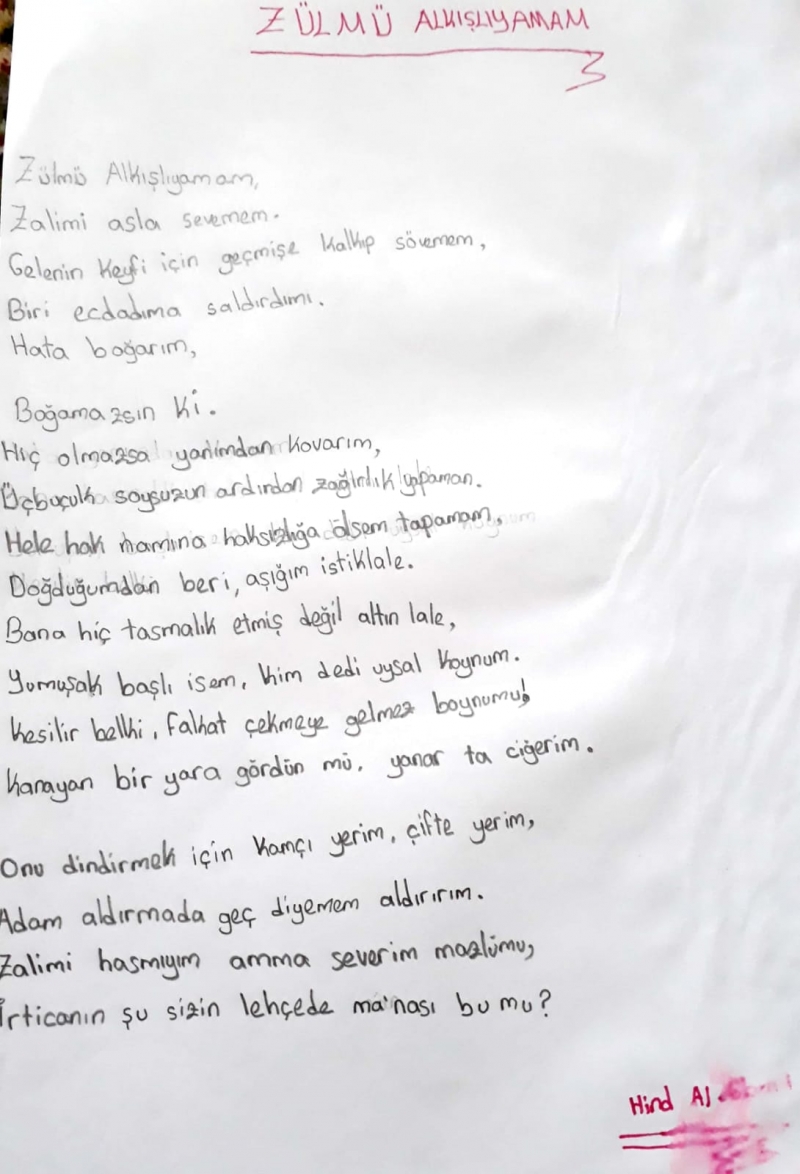 ZÜLMÜ ALKIŞLIYAMAM
Zülmü Alkışlıyamam,
Zalimi asla sevemem.
Gelenin keyfi için geçmişe kalkıp sövemem,
Biri ecdadıma saldırdımı.
Hata boğarım,
Boğamazsın ki.
Hiç olmazsa yanımdan kovarım,
Üçbuçuk soysuzun ardından zağırlık yapaman.
Hele hak mamına haksızlığa ölsem tapamam,
Doğduğumdan beri, aşığım istiklale.
Bana hiç tasmalık etmiş değil altın lale,
Yumuşak başlı isem, kim dedi uysal koynum.
Kesilir belki, falkat çekmeye gelmez boynumu!
Kanayan bir yara gördün mü, yanar ta ciğerim.
Onu dindirmek için kamçı yerim, çifte yerim,
Adam aldırmada geç diyemem aldırırım.
Zalimi hasmıyım amma severim mazlūmu,
İrticanın şu sizin lehçede ma'nası bu mu?
Hind Al